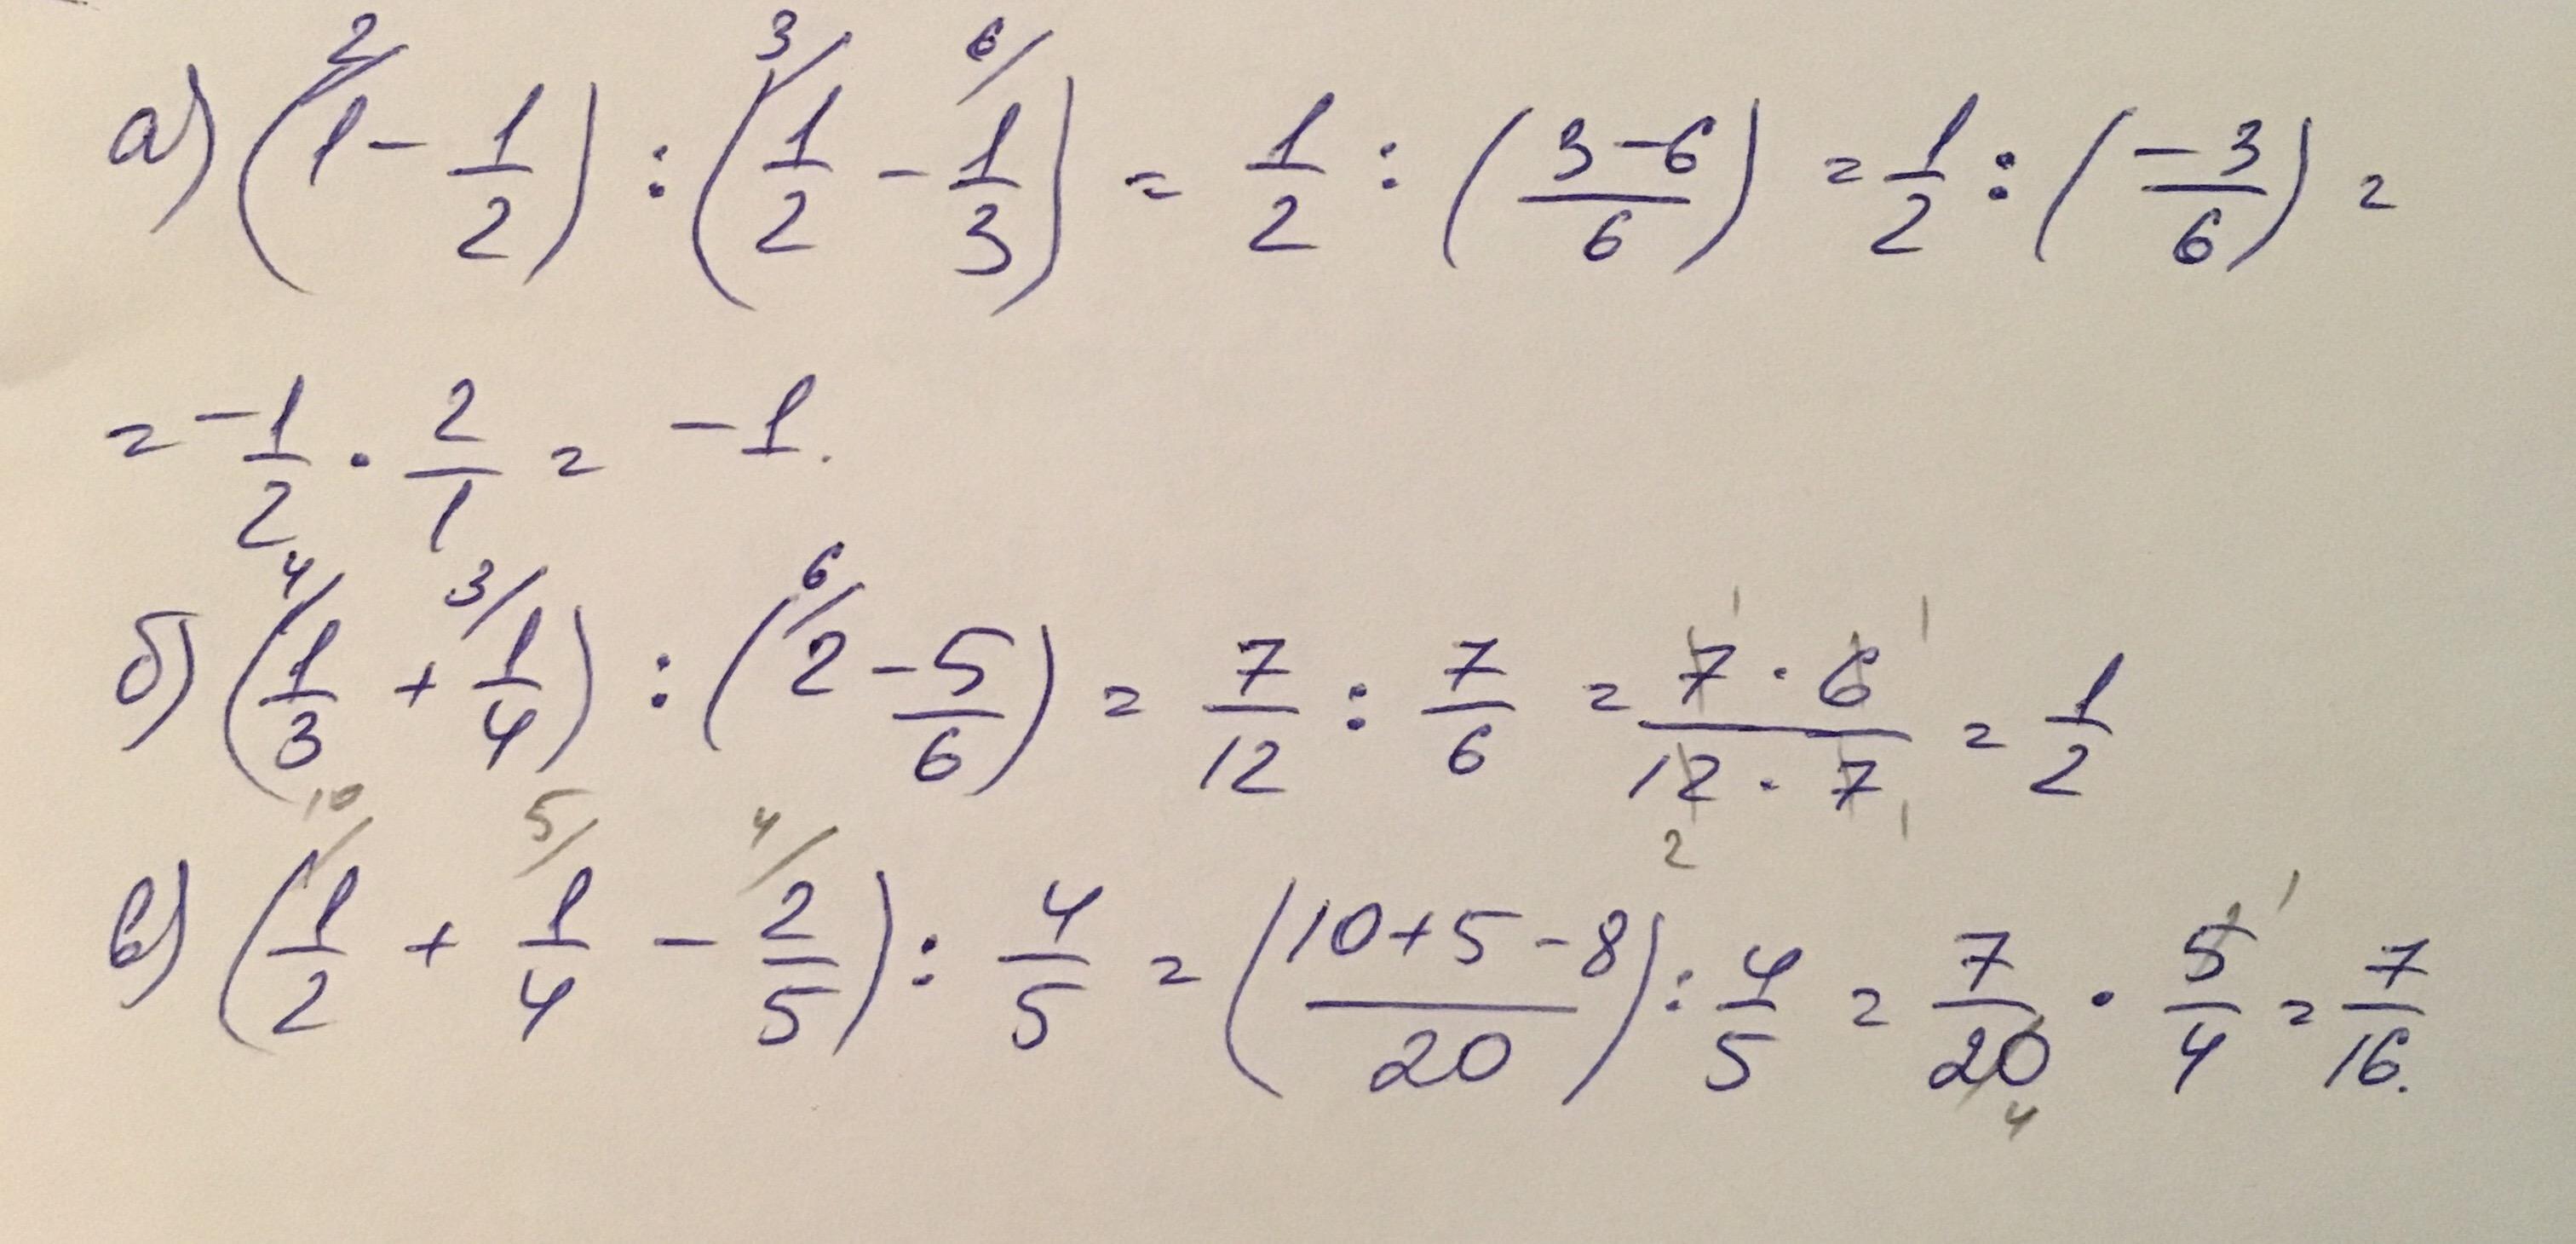 а) (2/ 1 - 1/2) : (3/ 1/2 - 6/ 1/3) = 1/2 : ((3-6)/6) = 1/2 : (-3/6) =
= -1/2 · 2/1 = -1.
б) (4/ 1/3 + 3/ 1/4) : (6/ 2 - 5/6) = 7/12 : 7/6 = (7 · 6)/(12 · 7) 1 1 2 1 = 1/2
в) (10/ 1/2 + 5/ 1/4 - 4/ 2/5) : 4/5 = ((10+5-8)/20) : 4/5 = 7/20 4 · 5/4 1 = 7/16.